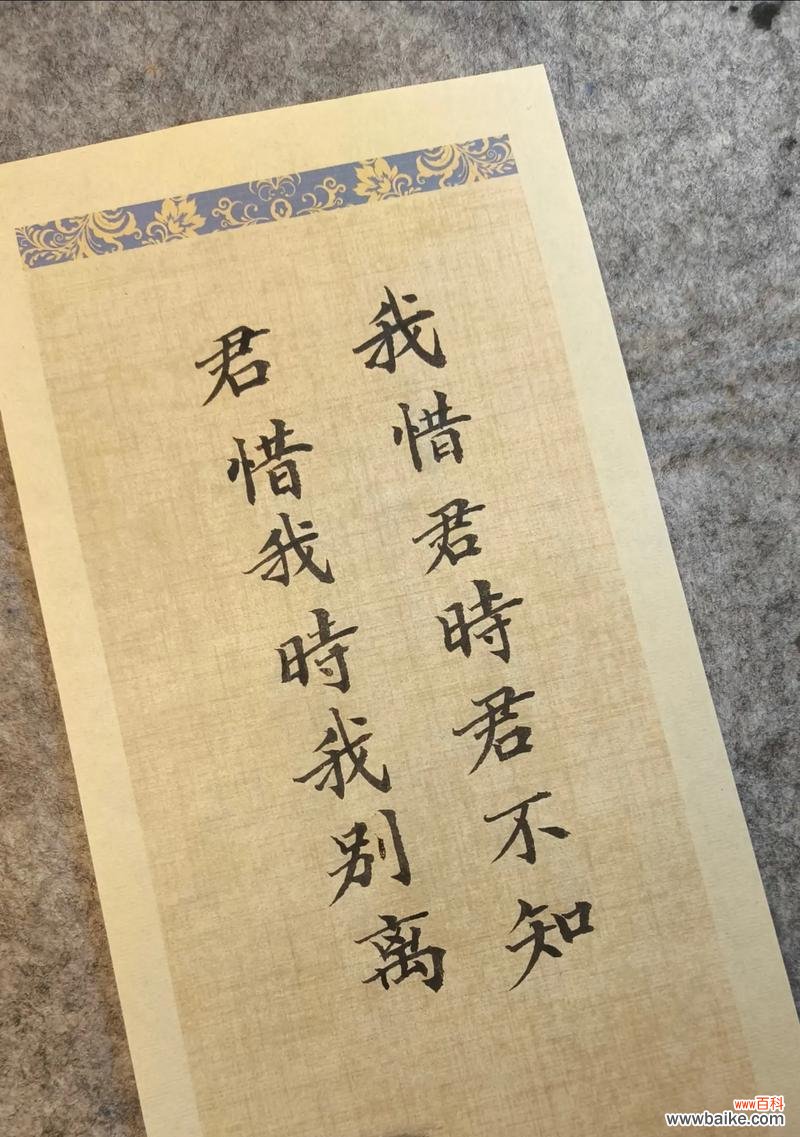 我惜君時君不知
君惜我時我别离
www百科
www.baike.com